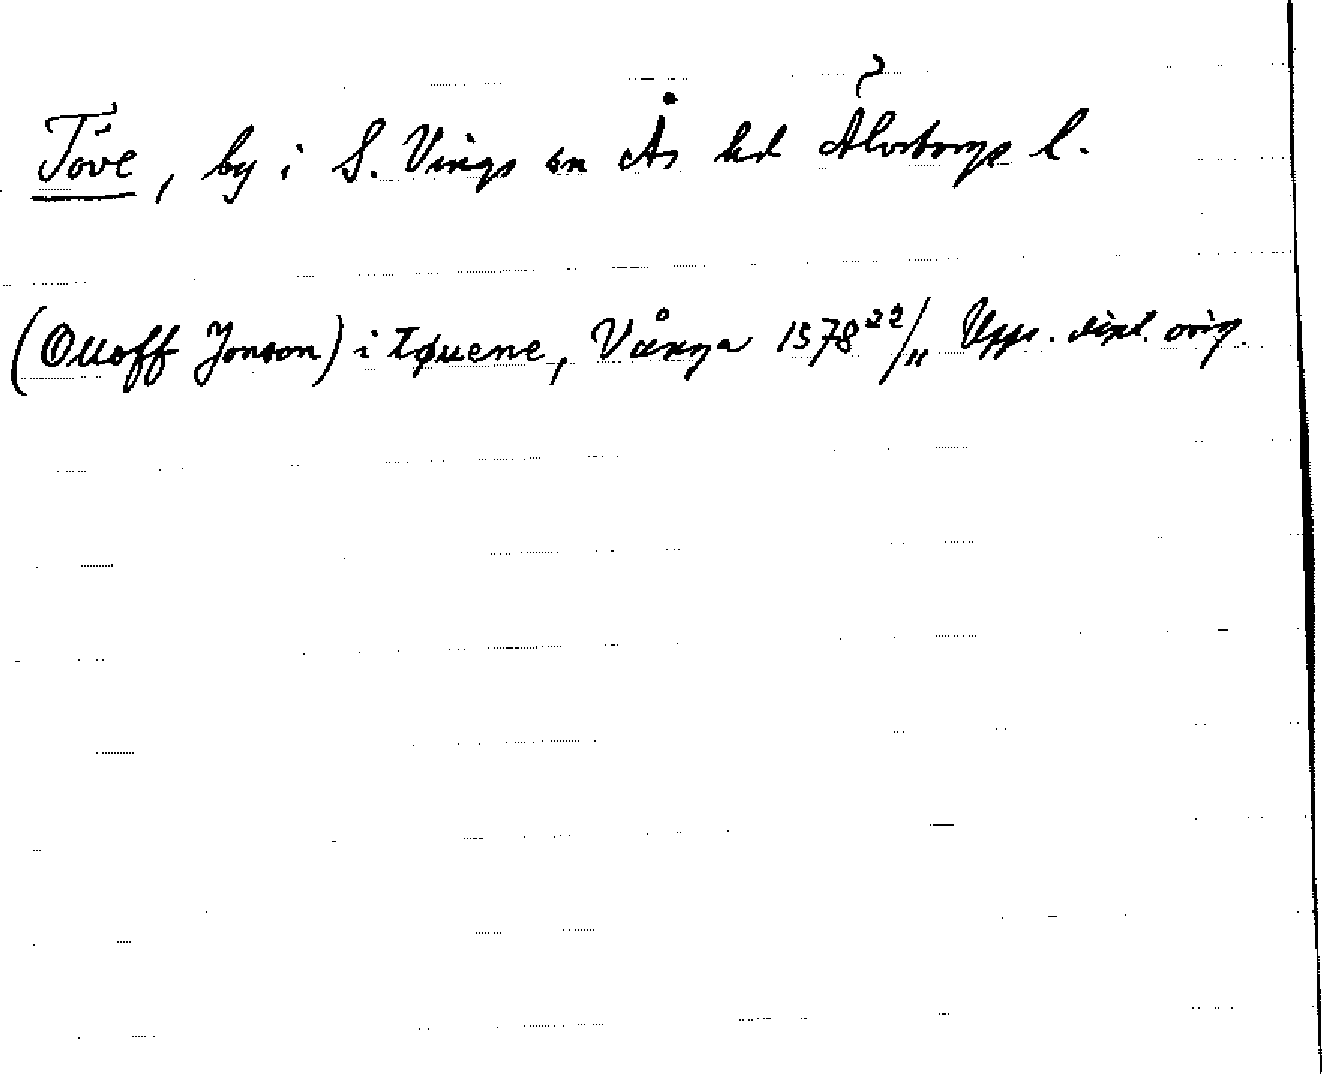 Töve, by i S. Vings sn Ås hd Älvsborgs l.
(Oluoff Jonson) i tøuene, Vånga 1578 22/11 Upps. dipl. orig.